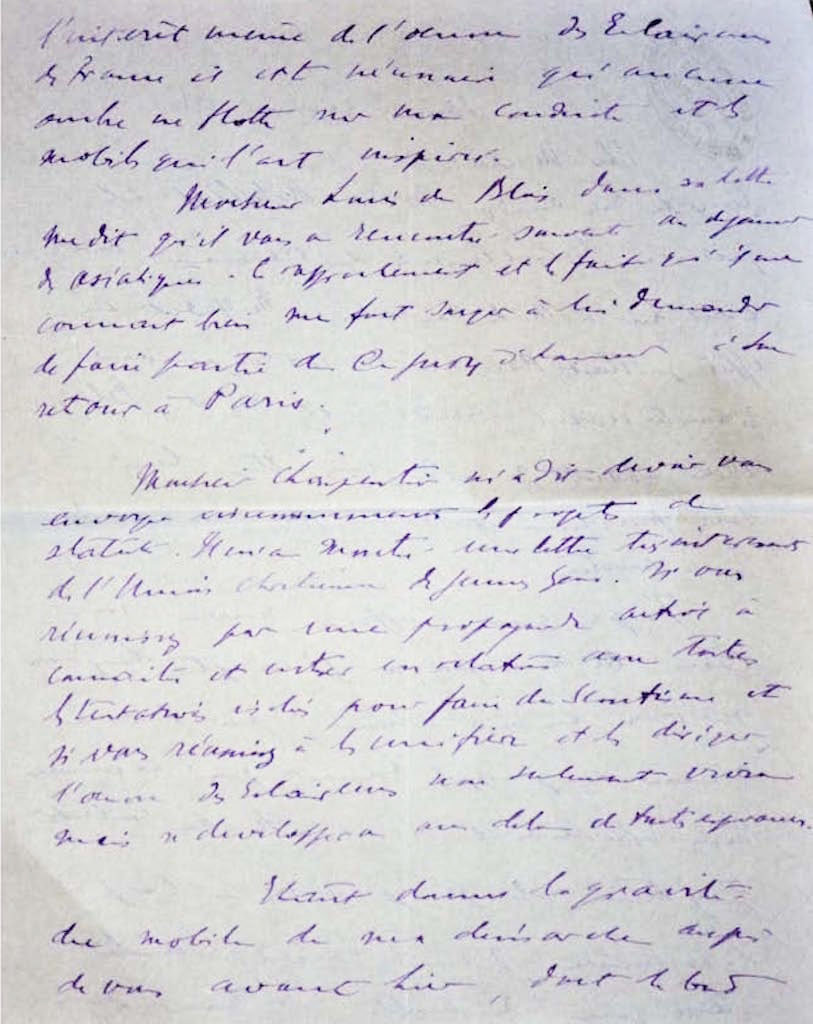 l'intérêt même de l'œuvre des Eclaireurs
de France il est nécessaire qu'aucune
ombre ne flotte sur ma conduite et les
mobiles qui l'ont inspirée.
Monsieur Louis de Blois dans sa lettre
me dit qu'il vous a rencontré souvent au déjeuner
des asiatiques. Ce et le fait qu'il me
connait bien me font songer à lui demander
de faire partie du Ce jury d'honneur à son
retour à Paris.
Monsieur Charpentier m'a dit devoir vous
envoyer les projets de
statuts. Il m'a montré une lettre très intéressante
de l'Union Chrétienne de jeunes Gens. Si vous
réussissez par une propagande active à
connaître et entrer en relations avec toutes
les tentatives isolées pour faire du Scoutisme et
si vous réussissez à les unifier et les diriger,
l'œuvre des Eclaireurs non seulement vivra
mais se développera au delà de toute espérance.
Etant donné la gravité
du mobile de ma démarche auprès
de vous avant hier, dont le